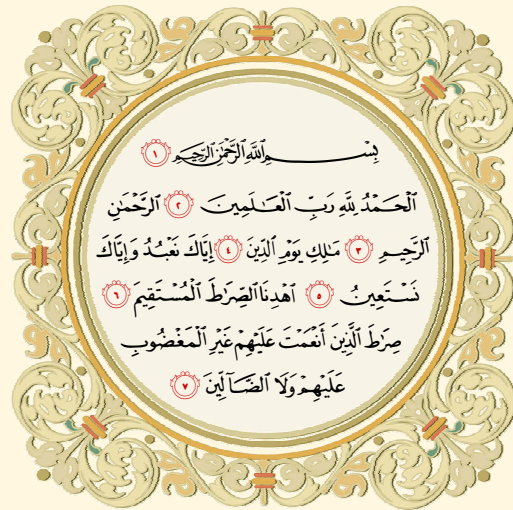 بِسْمِ ٱللَّهِ ٱلرَّحْمَٰنِ ٱلرَّحِيمِ ١
ٱلْحَمْدُ لِلَّهِ رَبِّ ٱلْعَٰلَمِينَ ٢ ٱلرَّحْمَٰنِ
ٱلرَّحِيمِ ٣ مَٰلِكِ يَوْمِ ٱلدِّينِ ٤ إِيَّاكَ نَعْبُدُ وَإِيَّاكَ
نَسْتَعِينُ ٥ ٱهْدِنَا ٱلصِّرَٰطَ ٱلْمُسْتَقِيمَ ٦
صِرَٰطَ ٱلَّذِينَ أَنْعَمْتَ عَلَيْهِمْ غَيْرِ ٱلْمَغْضُوبِ
عَلَيْهِمْ وَلَا ٱلضَّآلِّينَ ٧